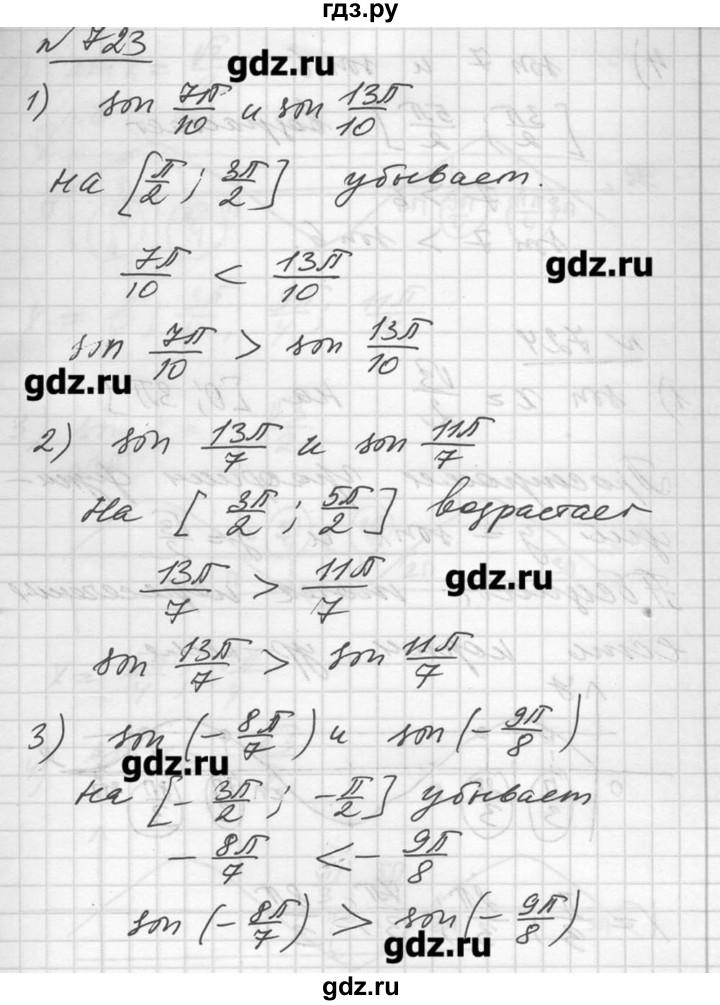 гдз.ру
№ 723
gdz.ru
1) sin 7π/10 и sin 13π/10
на [π/2 ; 3π/2] убывает.
7π/10 < 13π/10
gdz.ru
sin 7π/10 > sin 13π/10
gdz.ru
2) sin 13π/7 и sin 11π/7
на [3π/2 ; 5π/2] возрастает
13π/7 > 11π/7
gdz.ru
sin 13π/7 > sin 11π/7
3) sin (-8π/7) и sin (-9π/8)
gdz.ru
на [-3π/2 ; -π/2] убывает
-8π/7 < -9π/8
sin (-8π/7) > sin (-9π/8)
gdz.ru
гдз.ру